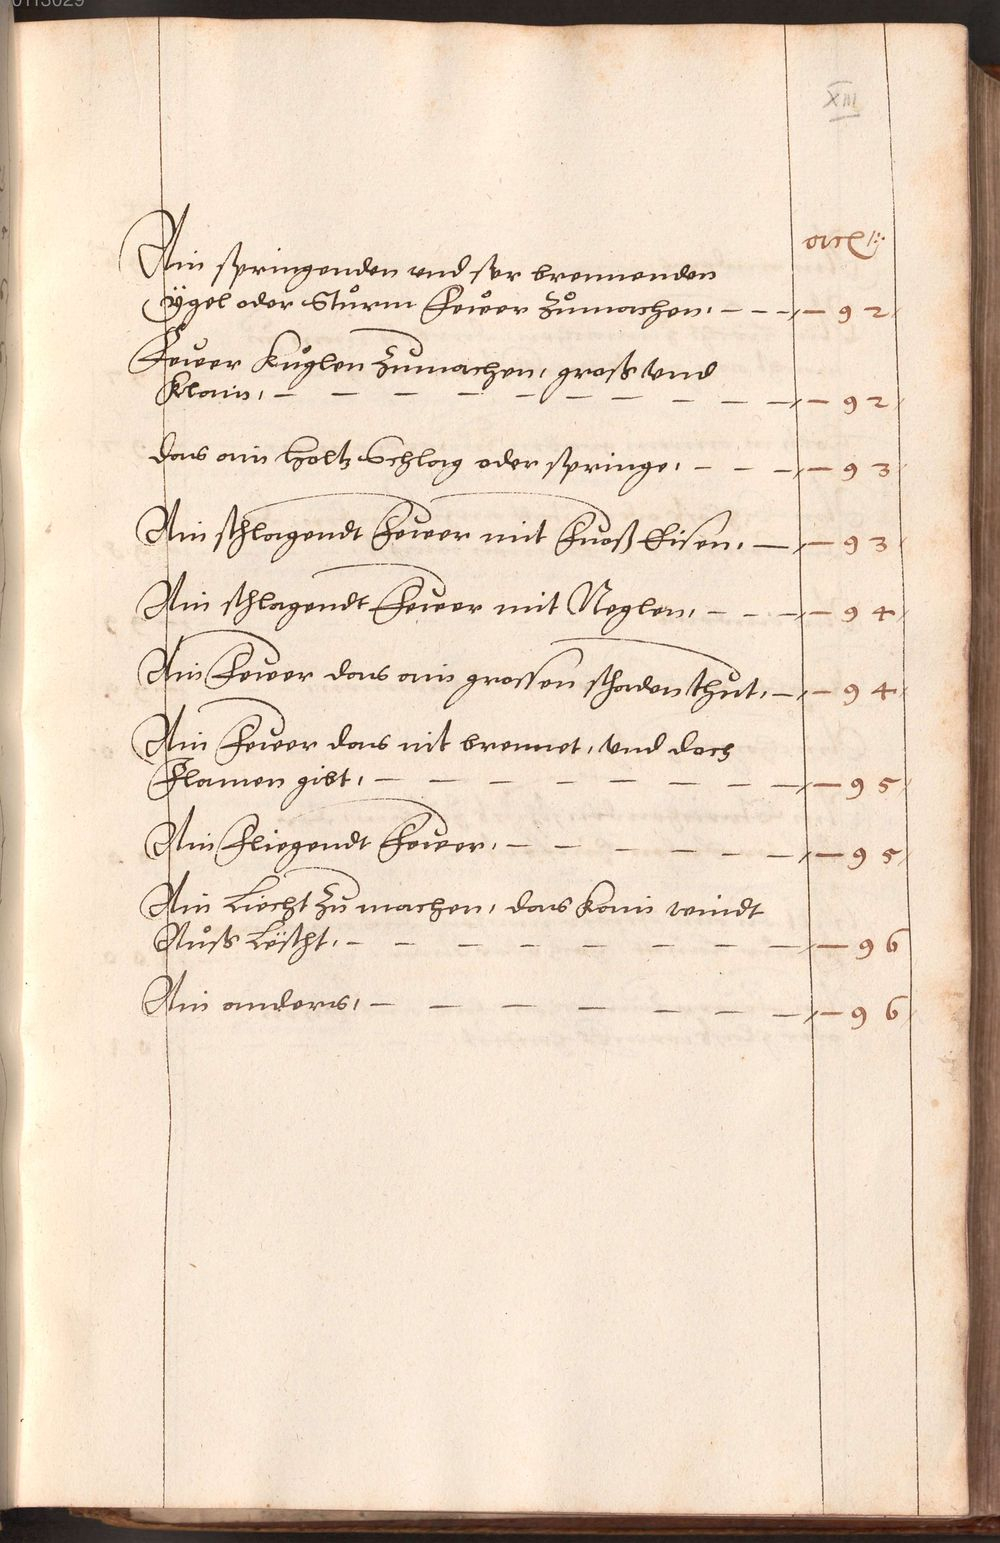 XIII
Ain springenden vnd ser brennenden
ÿgel oder Stůrm Feẃer zůmachen, 92
Feẃer Kůglen zůmachen, gross vnd
Klain, 92
das ain holtz Schlag oder springe, 93
Ain schlagendt Feẃer mit Fueß Eisen, 93
Ain schlagendt Feẃer mit Neglen, 94
Ain Feẃer das ain grossen schaden thut, 94
Ain Feẃer das nit brennet, vnd doch
Flamen gibt, 95
Ain Fliegendt Feẃer, 95
Ain Liecht zu machen, das kain windt
Aůss Lëscht, 96
Ain anders, 96